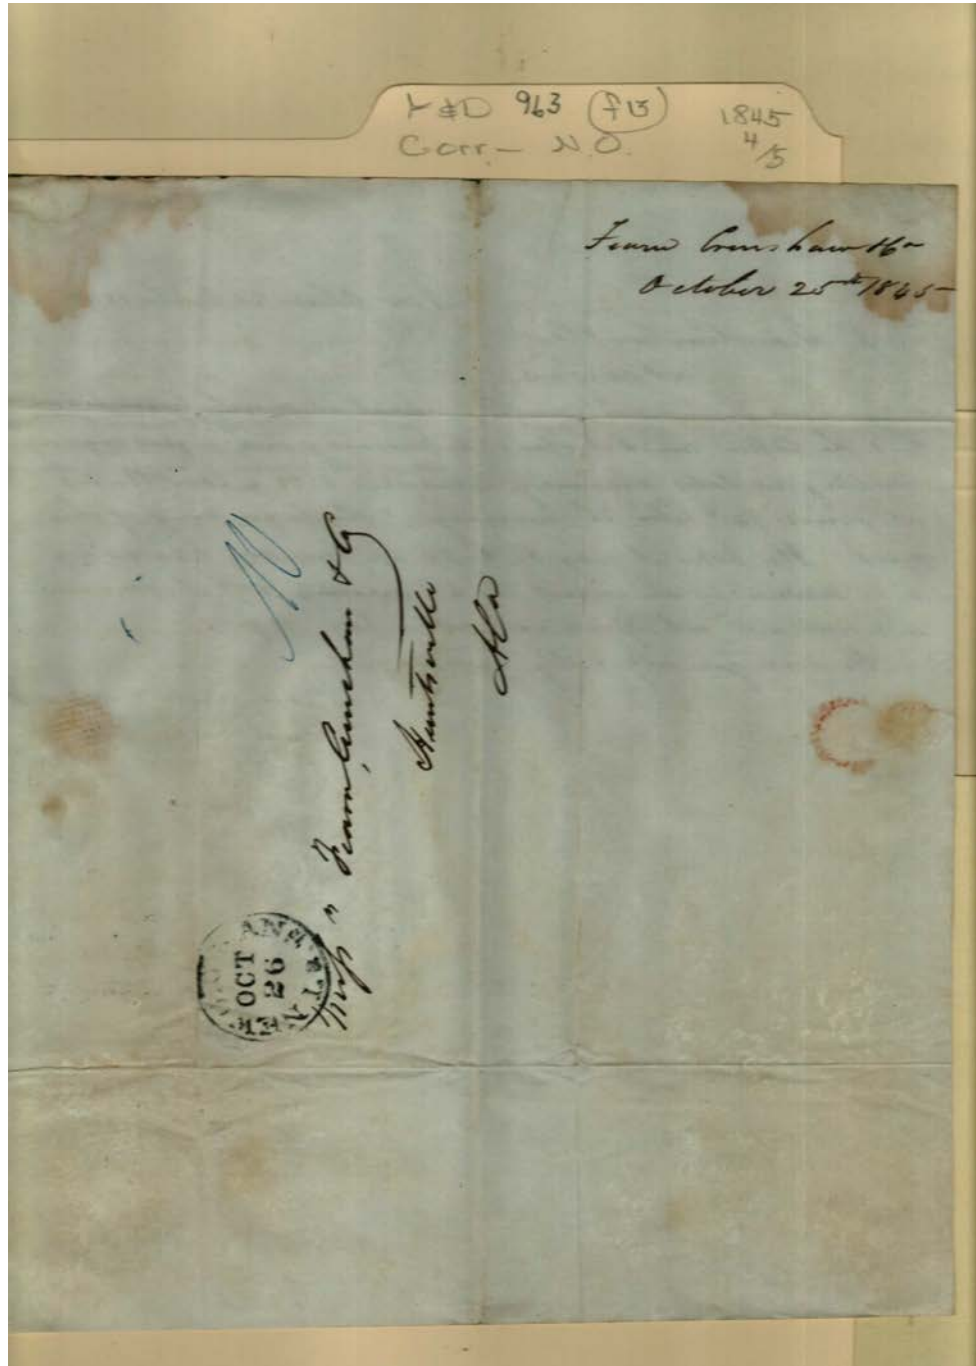 Y&D 963 (f13) 1845
Corr- N.O. 4/5
Fearn Crenshaw &Co
October 25th 1845
10
Mess" Fearn, Crenshaw & Co
Huntsville
Ala
NEW ORLEANS La
OCT
26